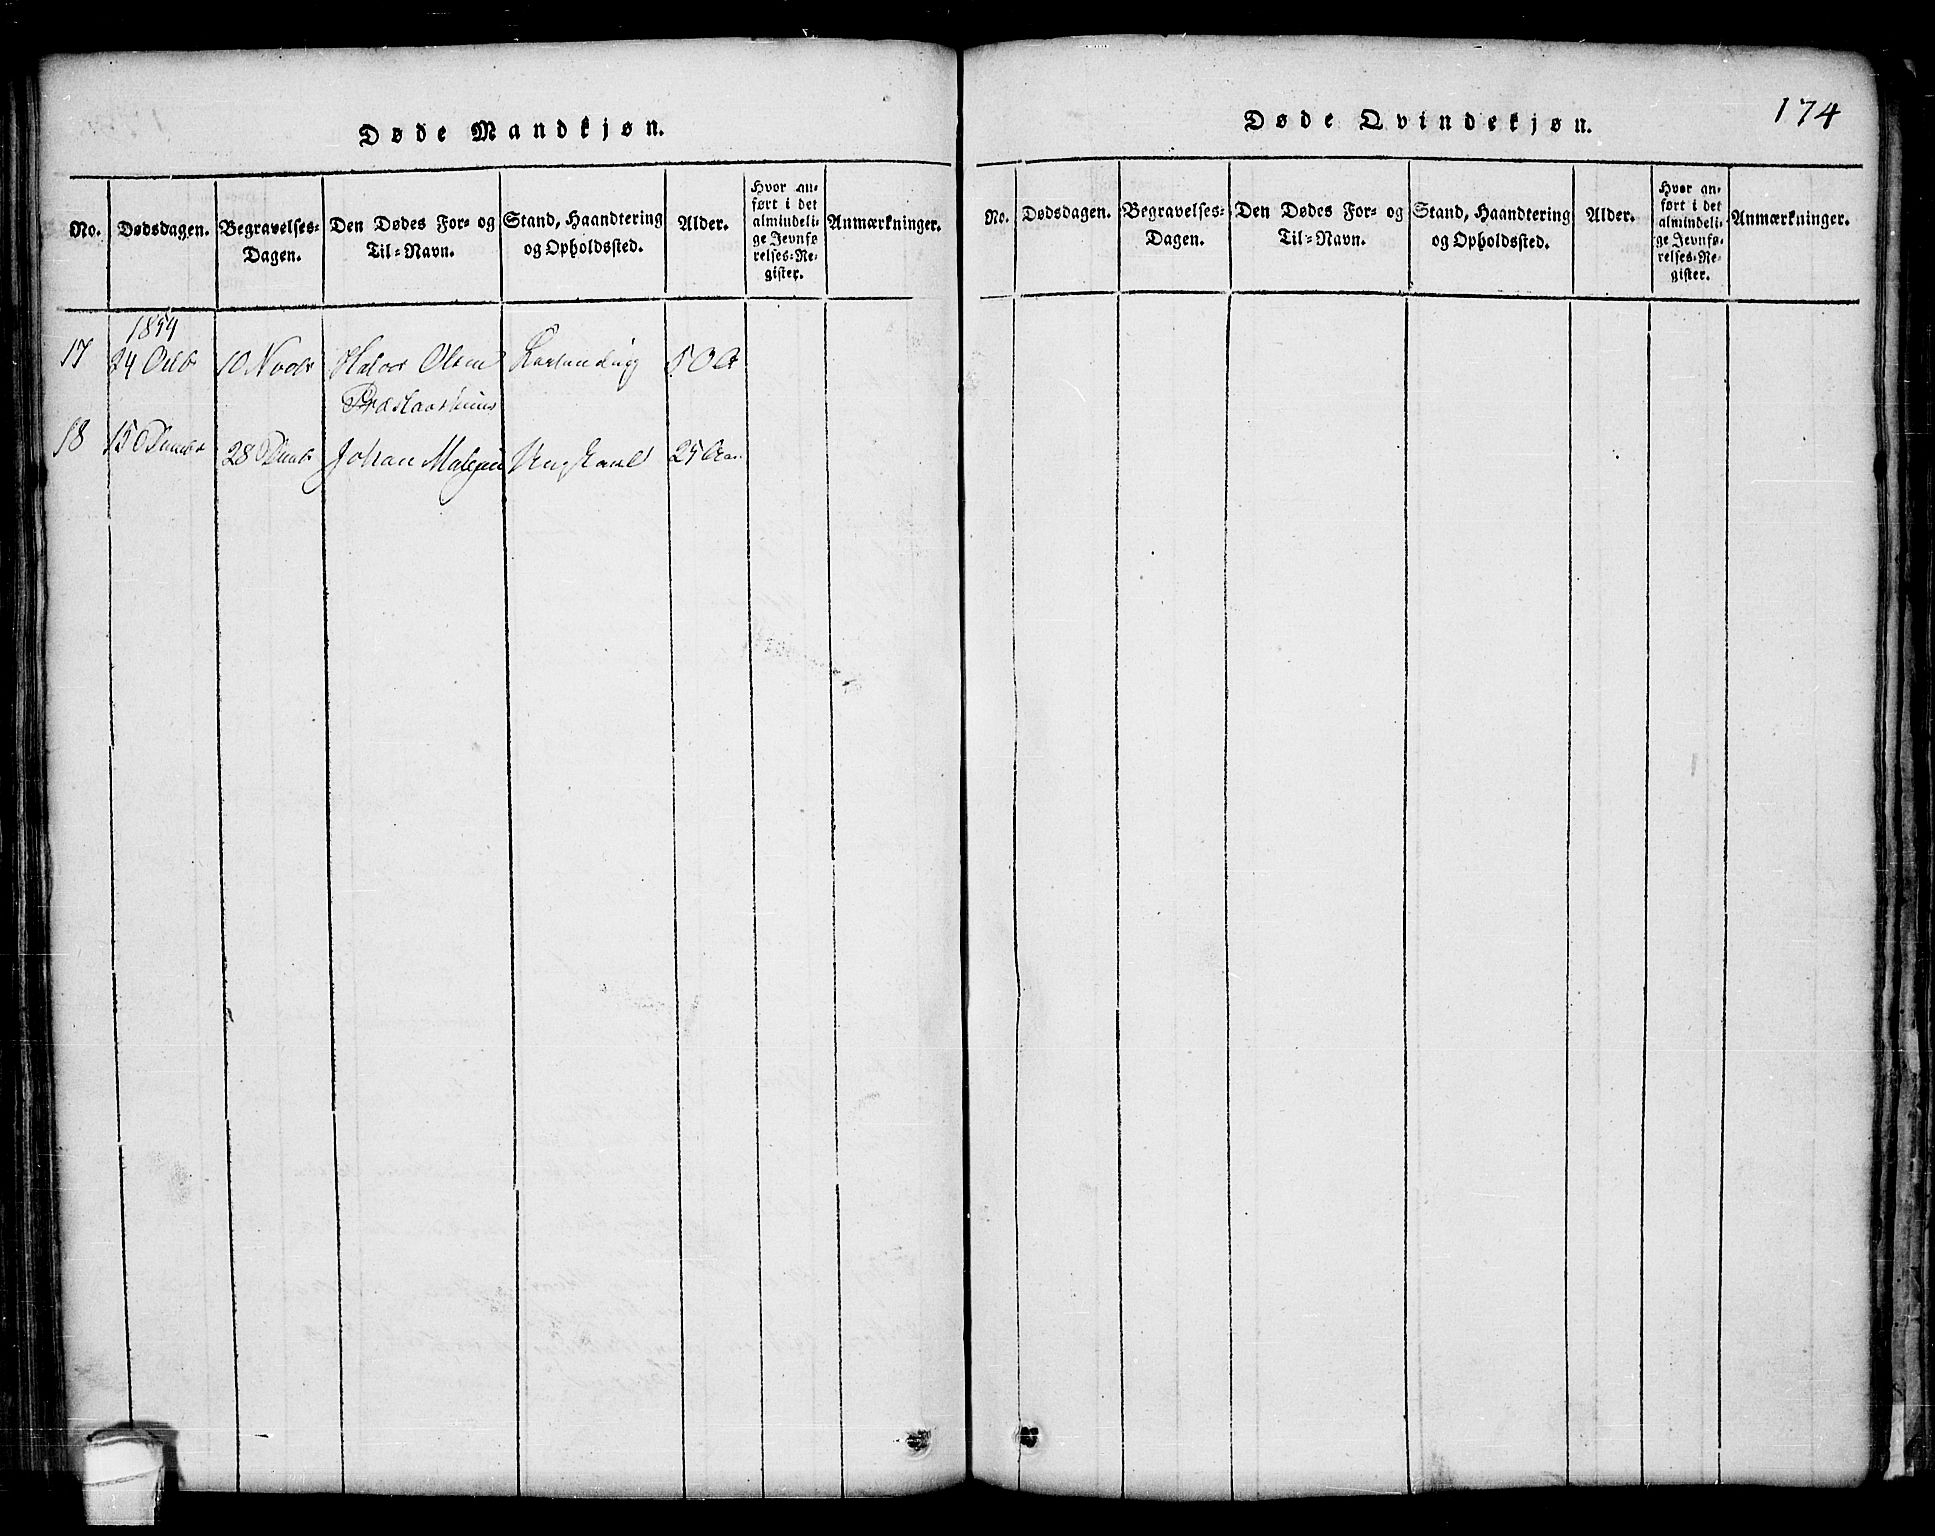 174
Døde Mandkjøn.
No. Dødsdagen. Begravelses-Dagen. Den Dødes For- og Til-Navn. Stand, Haandtering og Opholdssted. Alder. Hvor anført i det almindelige Jevnførelses-Register. Anmærkninger.
1854
17 24 Octb 10 Novbr Halvor Olsen 50 A
18 15 Decembr 28 Decbr Johan Ungkarl 25 Aar
Døde Qvindekjøn.
No. Dødsdagen. Begravelses-Dagen. Den Dødes For- og Til-Navn. Stand, Haandtering og Opholdssted. Alder. Hvor anført i det almindelige Jevnførelses-Register. Anmærkninger.